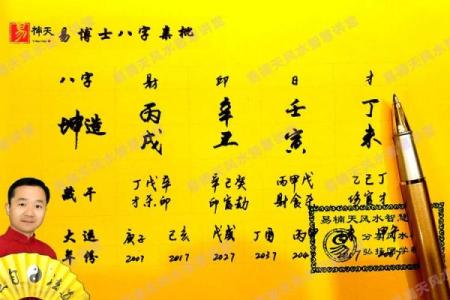 易 楠天 易博士八字亲批
八字 财 印 日 才
坤造 丙戌 辛丑 壬寅 丁未
藏干 丁戊辛 辛己癸 丙甲戊 乙己丁
才杀印 印官劫 财食杀 伤官才
大运 庚子 己亥 戊戌 丁酉 丙申 未 甲午
年份 2007 2017 2027 2037 204
易楠天风水智慧
分享风水
易楠天风水智慧讲堂